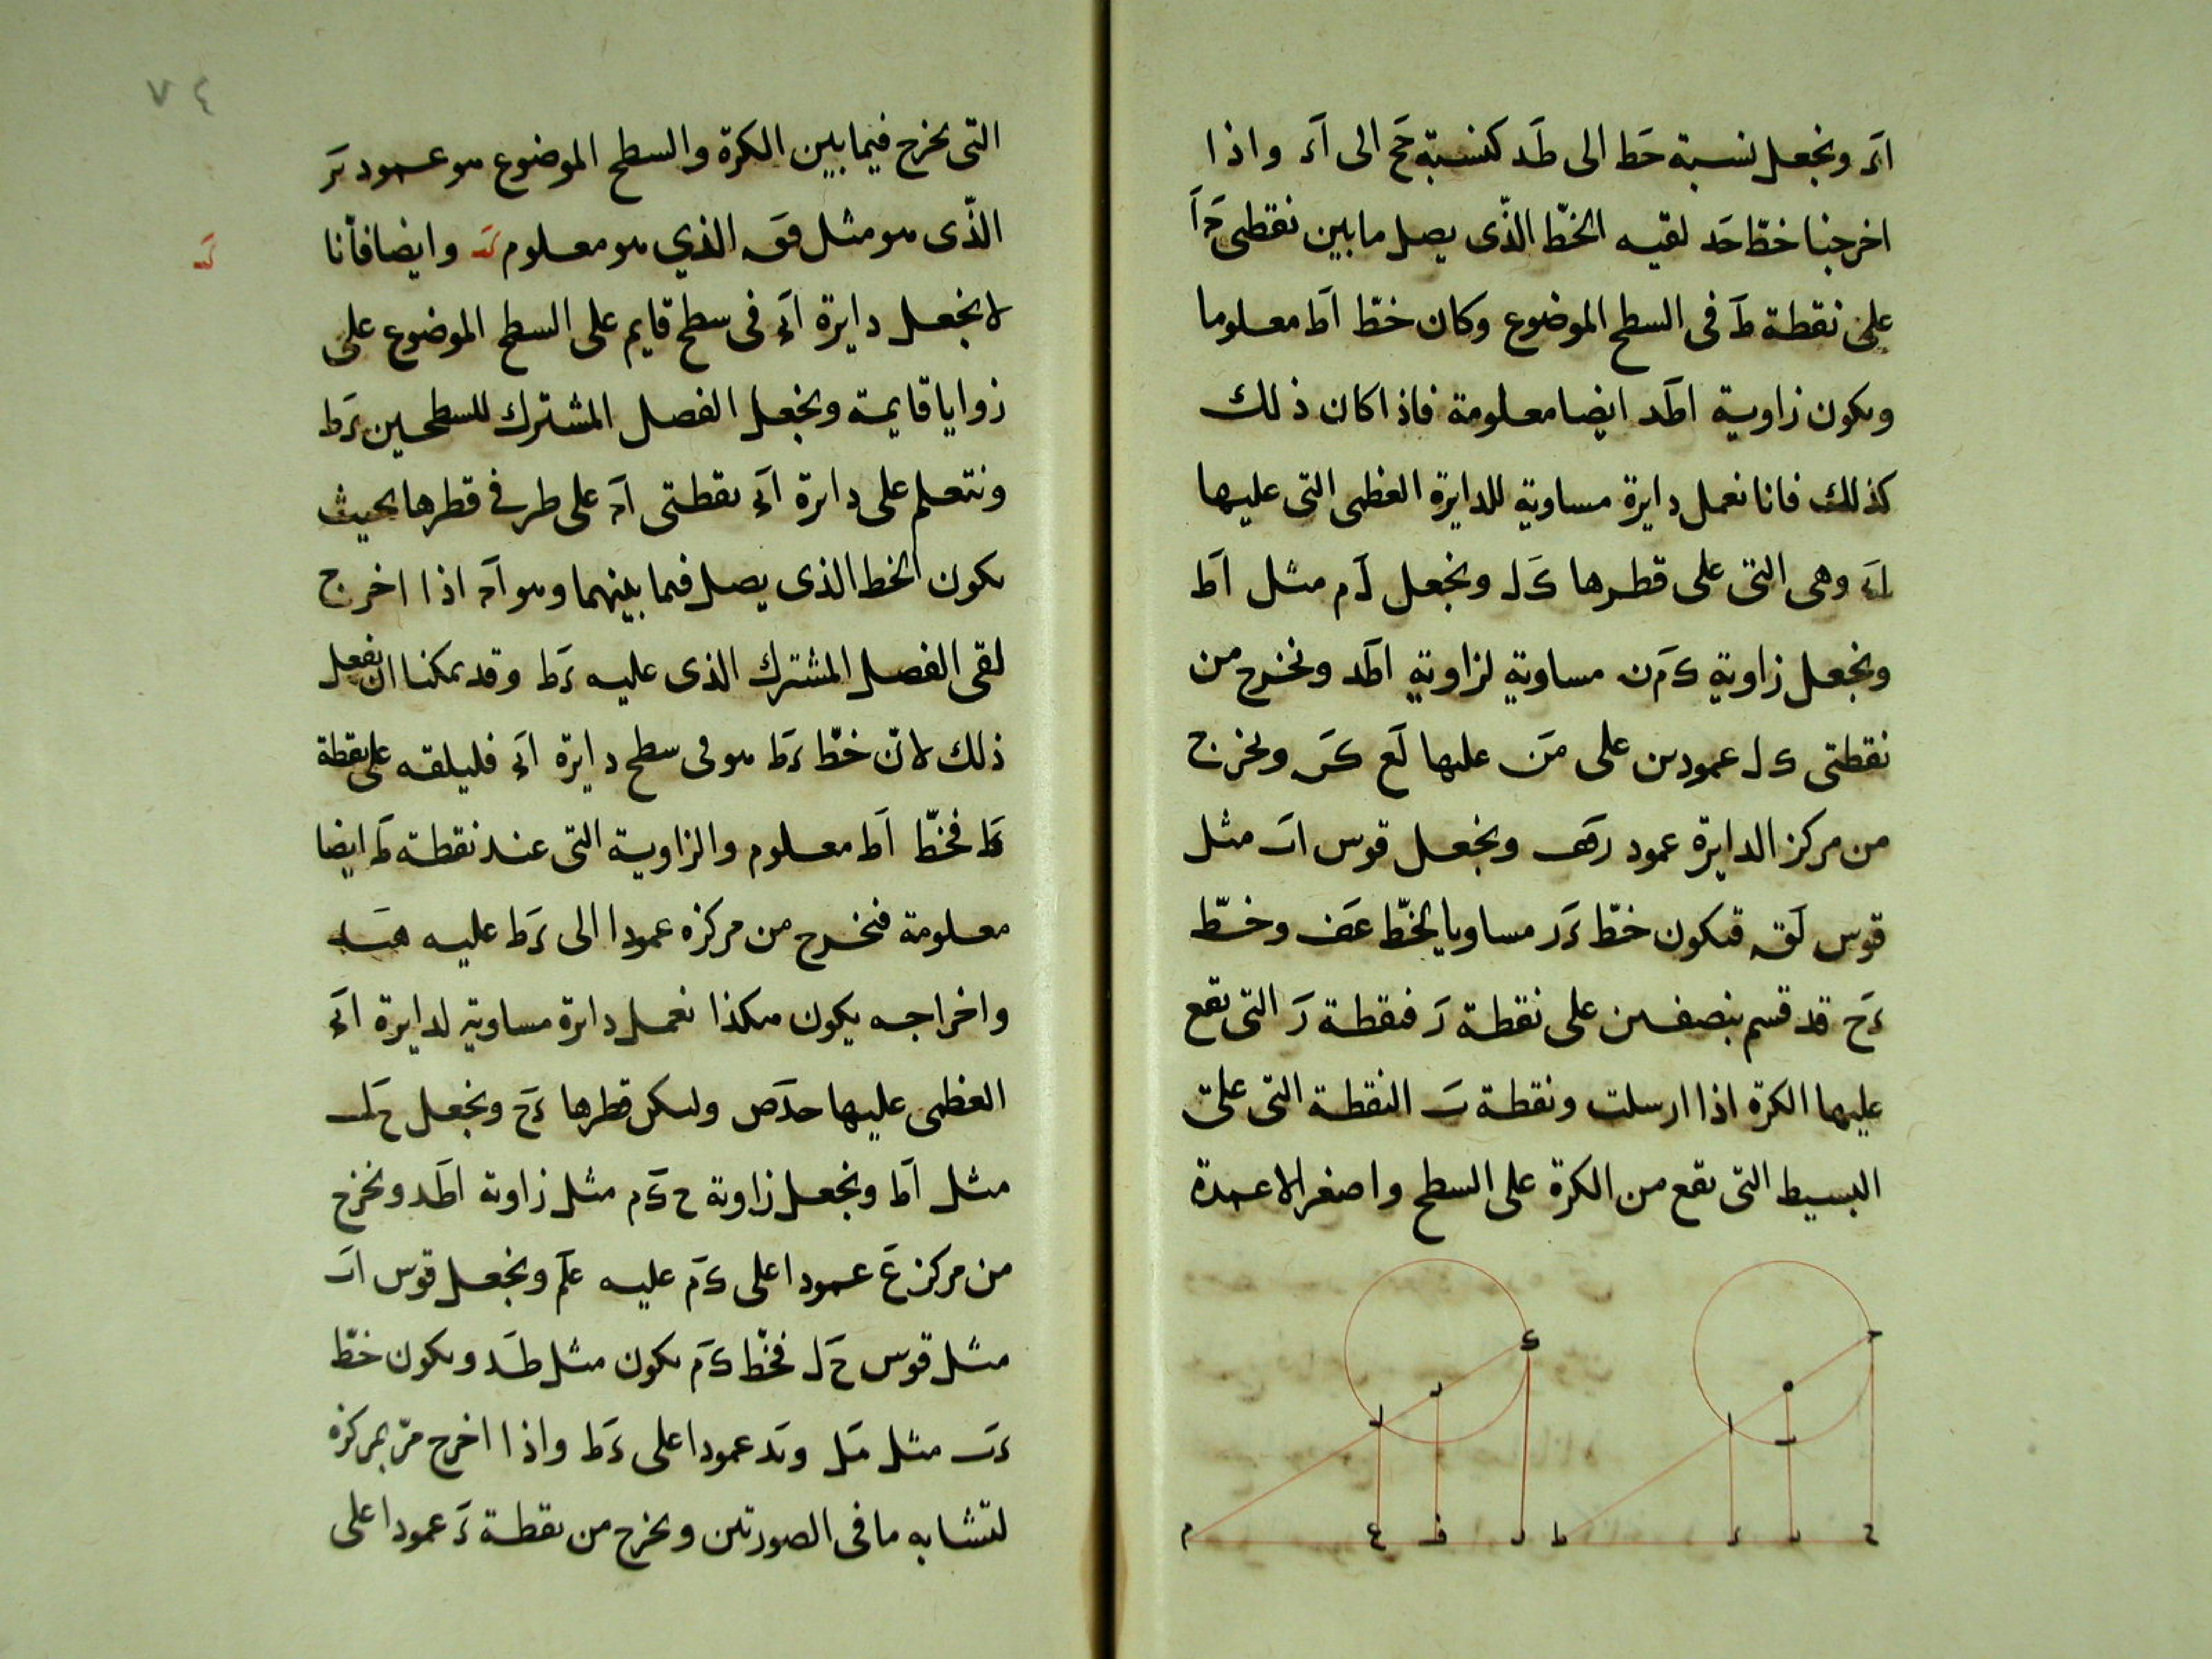 اَر ونجعل نسبة حَط الى طَد كنسبة حَج الى اَء واذا
اخرجنا خطّ حَد لقيه الخطّ الذّى يصل مابين نقطتى حَ اَ
على نقطة طَ فى السطح الموضوع وكان خطّ اَط معلوما
ويكون زاوية اطَد ايضا معلومة فاذا كان ذلك
كذلك فانا نعمل دايرة مساوية للدايرة العظمى التى عليها
وهى التى على قطرها كَل ونجعل لَم مثل اَط
ونجعل زاوية كَمَن مساوية لزاوية اطَد ونخرج من
نقطتى ك ل عمودين على مَن عليها لَع كَس ونخرج
من مركز الدايرة عمود ونجعل قوس اب مثل
قوس لَق فيكون خطّ مساويا لخطّ عَف وخطّ
ءَح قد قسم بنصفين على نقطة زَ فنقطة زَ التى تقع
عليها الكرة اذا ارسلت ونقطة بَ النقطة التى على
البسيط التى تقع من الكرة على السطح واصغر الاعمدة
ك
ح
ه
ا
ل
ب
م ع ف ط ح
٧٤
التى تخرج فيما بين الكرة والسطح الموضوع هو عمود بَز
الذّى هو مثل فَق الذي هو معلوم كَد وايضا فأنا
كَد
لا نجعل دايرة اَء فى سطح قايم على السطح الموضوع على
زوايا قايمة ونجعل الفصل المشترك للسطحين ءَط
ونتعلم على دايرة اَء نقطتى اَه على طرفى قطرها بحيث
يكون الخط الذى يصل فيما بينهما وهو اَه اذا اخرج
لقى الفصل المشترك الذى عليه ءَط وقد يمكنا ان نفعل
ذلك لانّ خطّ ءَط هو فى سطح دايرة اَء فليلقه على نقطة
طَ فخطّ اَط معلوم والزاوية التى عند نقطة طَ ايضا
معلومة فنخرج من مركزه عمودا الى ءَط عليه
واخراجه يكون هكذا نعمل دايرة مساوية لدايرة اَء
العظمى عليها وليكن قطرها ونجعل
مثل اَط ونجعل زاوية ح كَم مثل زاوية اطَد ونخرج
من مركز عَ عمودا على كَم عليه عَلَم ونجعل قوس اب
مثل قوس حَل فخطّ كَم يكون مثل طَد ويكون خطّ
ءَب مثل مَل وبَد عمودا على ءَط واذا اخرج مرّ بمركزه
لتشابه ما فى الصورتين ونخرج من نقطة ءَ عمودا على